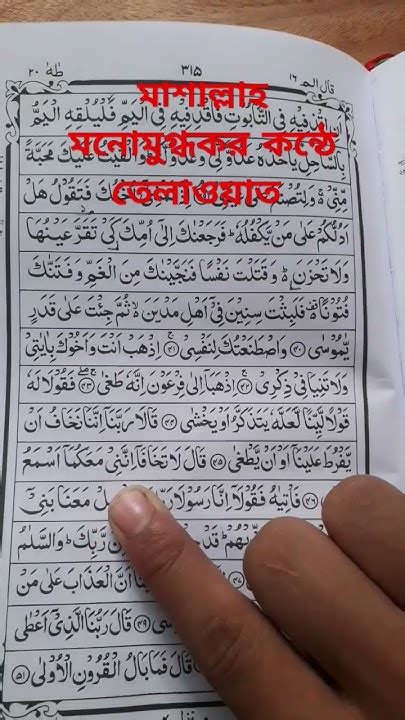 طٰهٰ ٢٠
٣١٥
قال الم ١٦
মাশাল্লাহ
মনোমুগ্ধকর কন্ঠে
তেলাওয়াত
اَنِ اقْذِفِيْهِ فِي التَّابُوْتِ فَاقْذِفِيْهِ فِي الْيَمِّ فَلْيُلْقِهِ الْيَمُّ
بِالسَّاحِلِ يَاْخُذْهُ عَدُوٌّ لِّيْ وَعَدُوٌّ عَلَيْكَ مَحَبَّةً
مِّنِّيْ ەۚ وَلِتُصْنَعَ فَتَقُوْلُ هَلْ
اَدُلُّكُمْ عَلٰى مَنْ يَّكْفُلُهٗ ؕ فَرَجَعْنٰكَ اِلٰٓى اُمِّكَ كَيْ تَقَرَّ عَيْنُهَا
وَلَا تَحْزَنَ ەؕ وَقَتَلْتَ نَفْسًا فَنَجَّيْنٰكَ مِنَ الْغَمِّ وَفَتَنّٰكَ
فُتُوْنًا ەۚ فَلَبِثْتَ سِنِيْنَ فِيْٓ اَهْلِ مَدْيَنَ ەۙ ثُمَّ جِئْتَ عَلٰى قَدَرٍ
يّٰمُوْسٰى ﴿٤٠﴾ وَاصْطَنَعْتُكَ لِنَفْسِيْ ﴿٤١﴾ اِذْهَبْ اَنْتَ وَاَخُوْكَ بِاٰيٰتِيْ
وَلَا تَنِيَا فِيْ ذِكْرِيْ ﴿٤٢﴾ اِذْهَبَآ اِلٰى فِرْعَوْنَ اِنَّهٗ طَغٰى ﴿٤٣﴾ فَقُوْلَا لَهٗ
قَوْلًا لَّيِّنًا لَّعَلَّهٗ يَتَذَكَّرُ اَوْ يَخْشٰى ﴿٤٤﴾ قَالَا رَبَّنَآ اِنَّنَا نَخَافُ اَنْ
يَّفْرُطَ عَلَيْنَآ اَوْ اَنْ يَّطْغٰى ﴿٤٥﴾ قَالَ لَا تَخَافَآ اِنَّنِيْ مَعَكُمَآ اَسْمَعُ
﴿٤٦﴾ فَاْتِيٰهُ فَقُوْلَآ اِنَّا رَسُوْلَا مَعَنَا بَنِيْٓ
رَّبِّكَ ؕ وَالسَّلٰمُ
اَنَّ الْعَذَابَ عَلٰى مَنْ
﴿٤٩﴾ قَالَ رَبُّنَا الَّذِيْٓ اَعْطٰى
قَالَ فَمَا بَالُ الْقُرُوْنِ الْاُوْلٰى ﴿٥١﴾